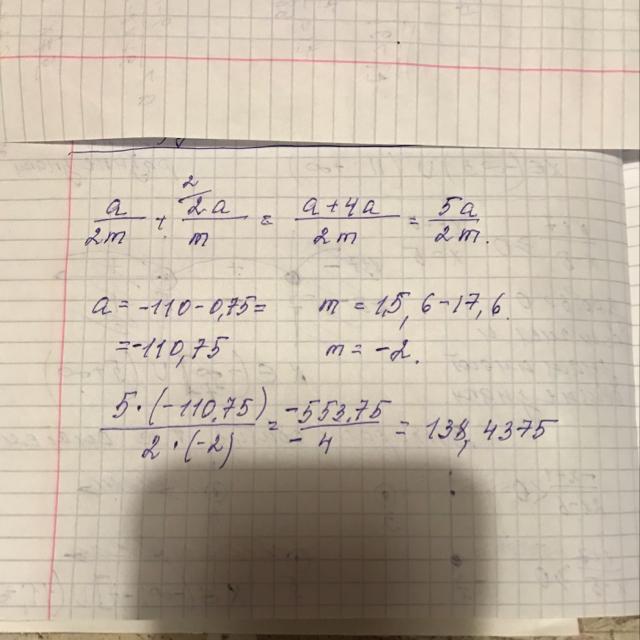 a/2m + 2a/m (2 = a+4a/2m = 5a/2m.
a = -110-0,75= m = 15,6-17,6.
=-110,75 m = -2.
5·(-110,75)/2·(-2) = -553,75/-4 = 138,4375